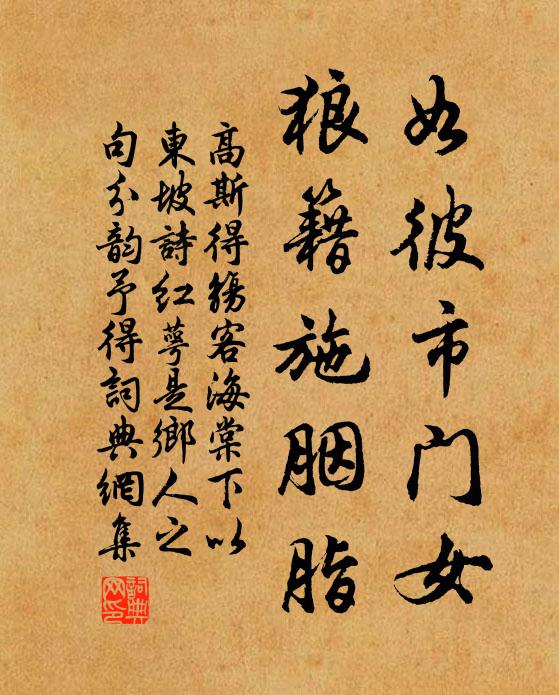 如彼市门女
狼籍施胭脂
高斯得觴客海棠下以
東坡詩紅萼是鄉人之
句分韵予得詞典網集
詞典网印